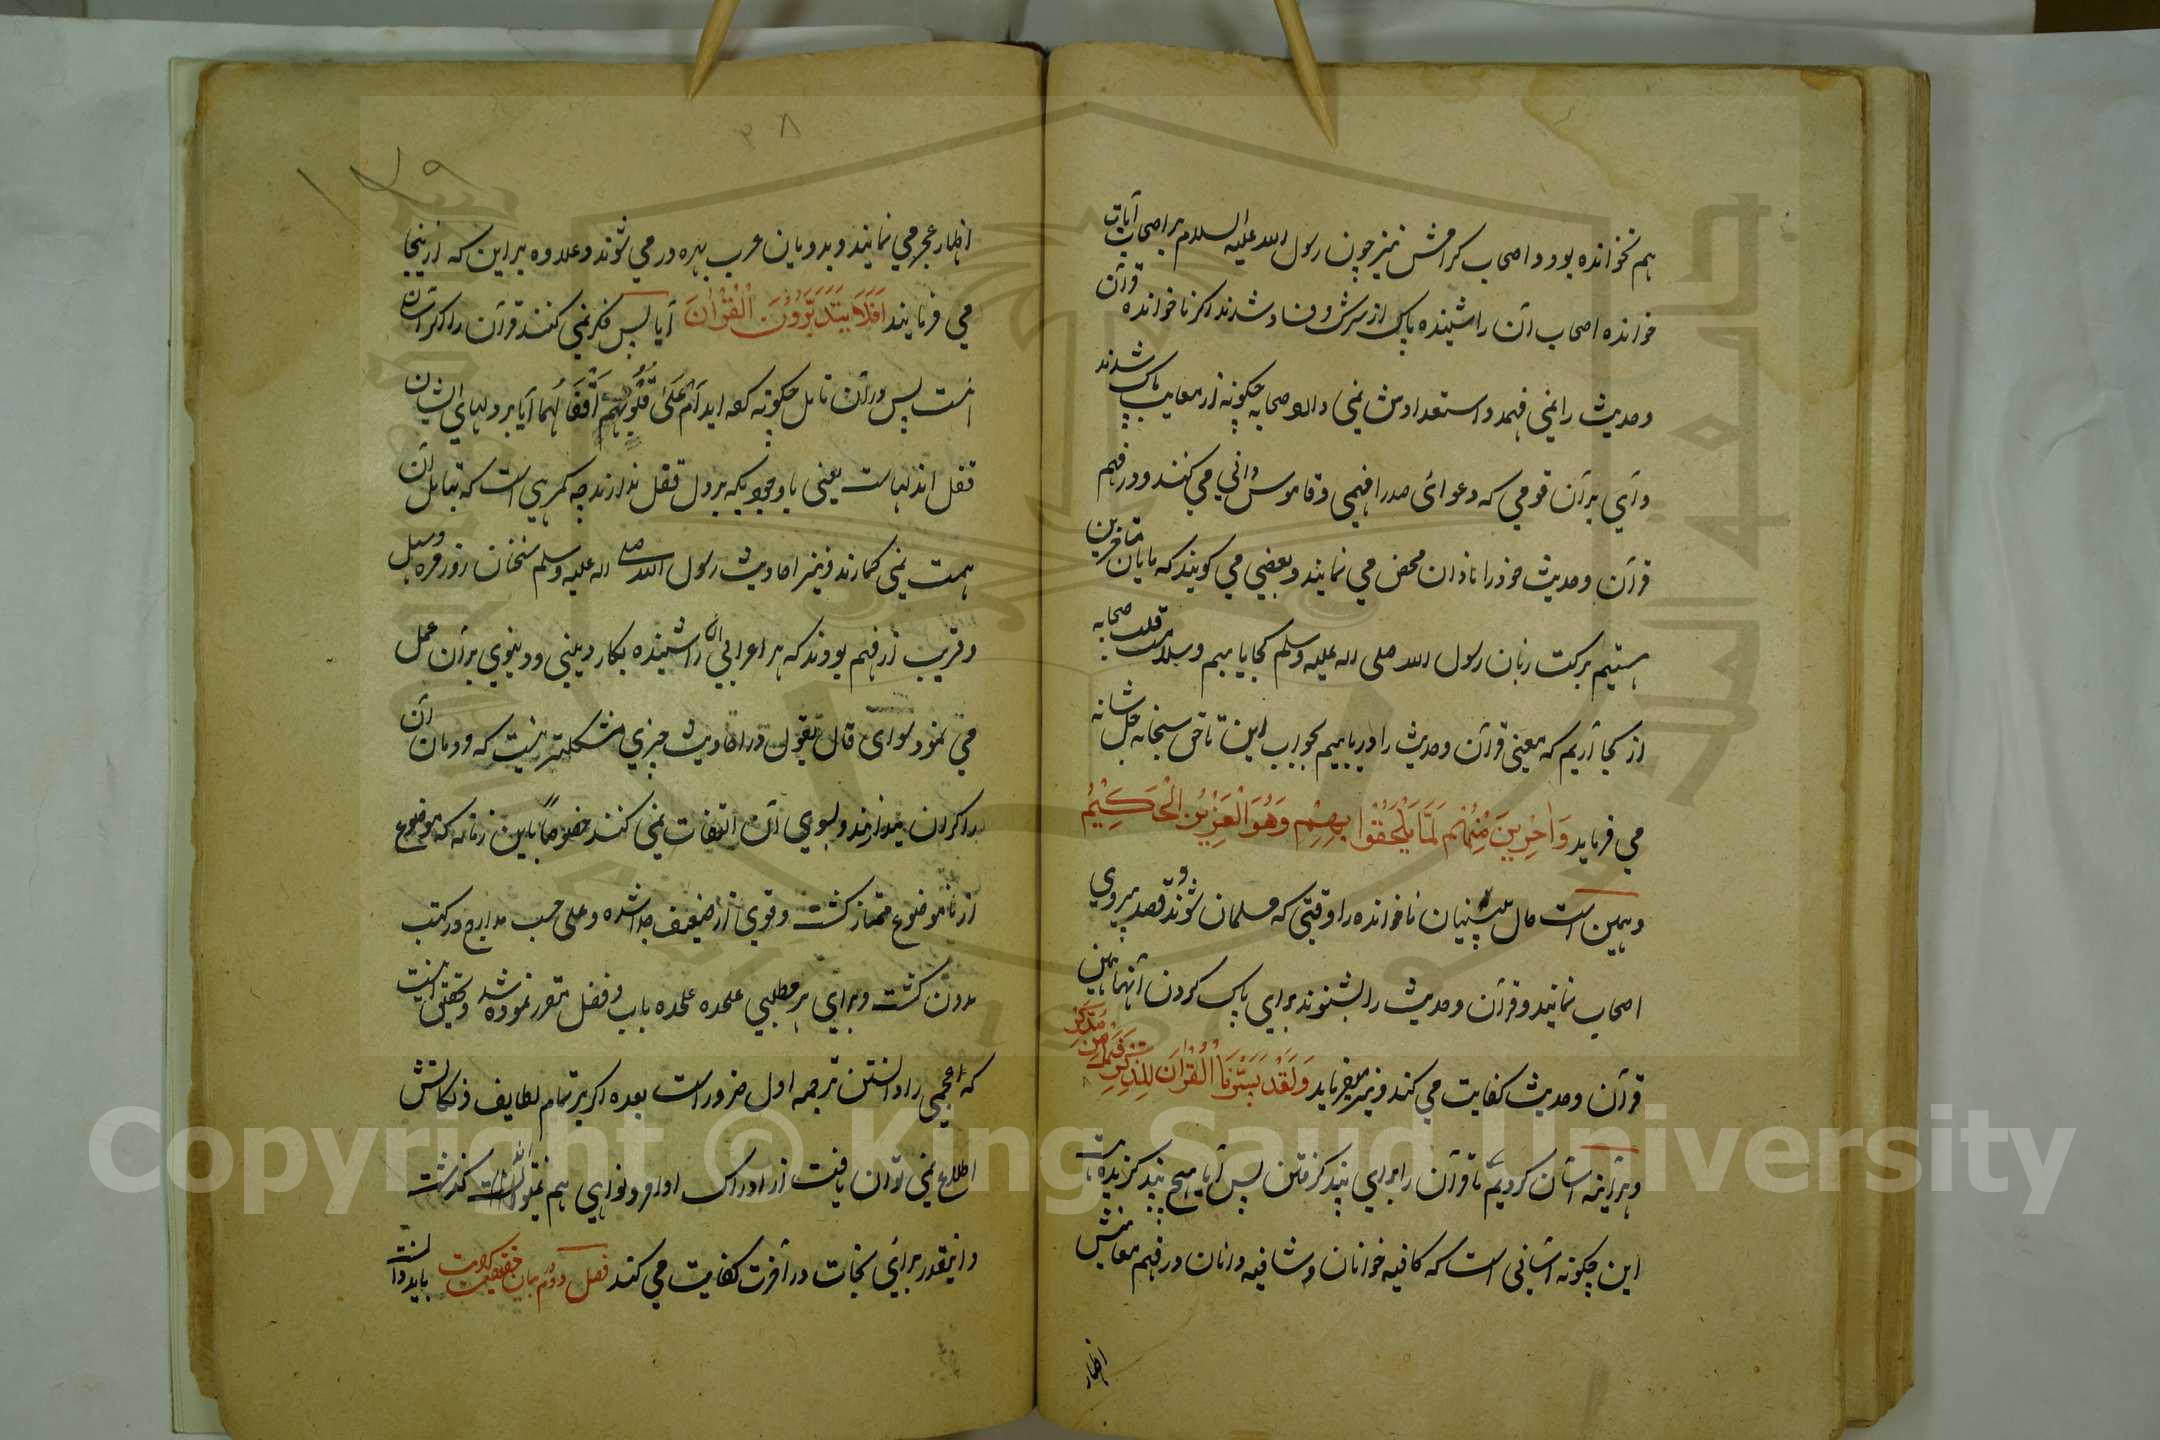 هم نخوانده بود و اصحاب کرامش نیز چون رسول الله علیه السلام بر اصحاب آیات
خوانده اصحاب آن را شنیده پاک از شرک و فساد شدند اکر ناخوانده قرآن
و حدیث را نمی فهمد و استعدادش نمی دارد صحابه چکونه از معایب پاک شدند
وای بر آن قومی که دعوائ صدرا فهمی و قاموس دانی می کنند و در فهم
قرآن و حدیث خود را نادان محض می نمایند و بعضی می کویند که مایان متاخرین
هستیم برکت زبان رسول الله صلی الله علیه وسلم کجا یابیم و سلامت قلب صحابه
از کجا آریم که معنی قرآن و حدیث را دریابیم بجواب این تا حق سبحانه جل شانه
می فرماید وَاٰخَرِينَ مِنْهُمْ لَمَّا يَلْحَقُوْا بِهِمْ وَهُوَ الْعَزِيْزُ الْحَكِيْمُ
و همین است حال پسینیان ناخوانده را وقتی که مسلمان شوند و قصد پیروی
اصحاب نمایند و قرآن و حدیث را بشنوند برای پاک کردن آنها همین
قرآن و حدیث کفایت می کند و نیز میفرماید وَلَقَدْ يَسَّرْنَا الْقُرْاٰنَ لِلذِّكْرِ فَهَلْ مِنْ مُدَّكِرٍ
و هرآئینه آسان کردیم ما قرآن را برای پند کرفتن پس آیا هیچ پند کیرنده هست
این چکونه آسانی است که کافیه خوانان و شافیه دانان در فهم معانیش
اظهار
۳۸
۱۷۹
اظهار عجز می نمایند و بدویان عرب بهره ور می شوند و علاوه بر این که از ینجا
می فرمایند اَفَلَا يَتَدَبَّرُوْنَ الْقُرْاٰنَ آیا پس فکر نمی کنند قرآن را اکر آسان
نیست پس در آن تامل چکونه کرده اید اَمْ عَلٰى قُلُوْبِهِمْ اَقْفَالُهَا آیا بر دلهای ایشان
قفل آندلهاست یعنی باوجودیکه بر دل قفل ندارند چه کمرهی است که بتامل آن
همت نمی کمارند و نیز احادیث رسول الله صلی الله علیه وسلم سخنان روزمره و سهل
و قریب از فهم بودند که هر اعرابی آن را شنیده بکار دینی و دنیوی بر آن عمل
می نمود سوای قال یقول در احادیث چیزی مشکلتر نیست که و دمان آن
ذاکران میدارند و بسوی آن التفات نمی کنند خصوصاً باین زمانه که موضوع
از ناموضوع ممتاز کشت و قوی از ضعیف جدا شده و علی حسب مدارج در کتب
مدون کشت و برای هر مطلبی علحده علحده باب و فصل مقرر نموده شد و تحقیق آنست
که اعجمی را دانستن ترجمه اول ضرور است بعده اکر بر تمام لطایف و نکاتش
اطلاع نمی توان یافت از ادراک اوامر و نواهی هم نمیتوان کذشت
و اینقدر برائ نجات در آخرت کفایت می کند فصل دوم بیان حقیقت کرامت باید دانست
Copyright © King Saud University